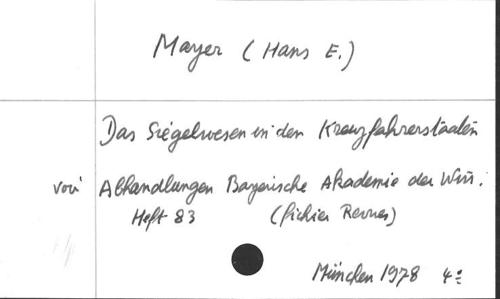 Mayer (Hans E.)
Das Siegelwesen in den Kreuzfahrerstaaten
voir Abhandlungen Bayerische Akademie der Wiss.
Heft 83 (fichier Revues)
München 1978 4º